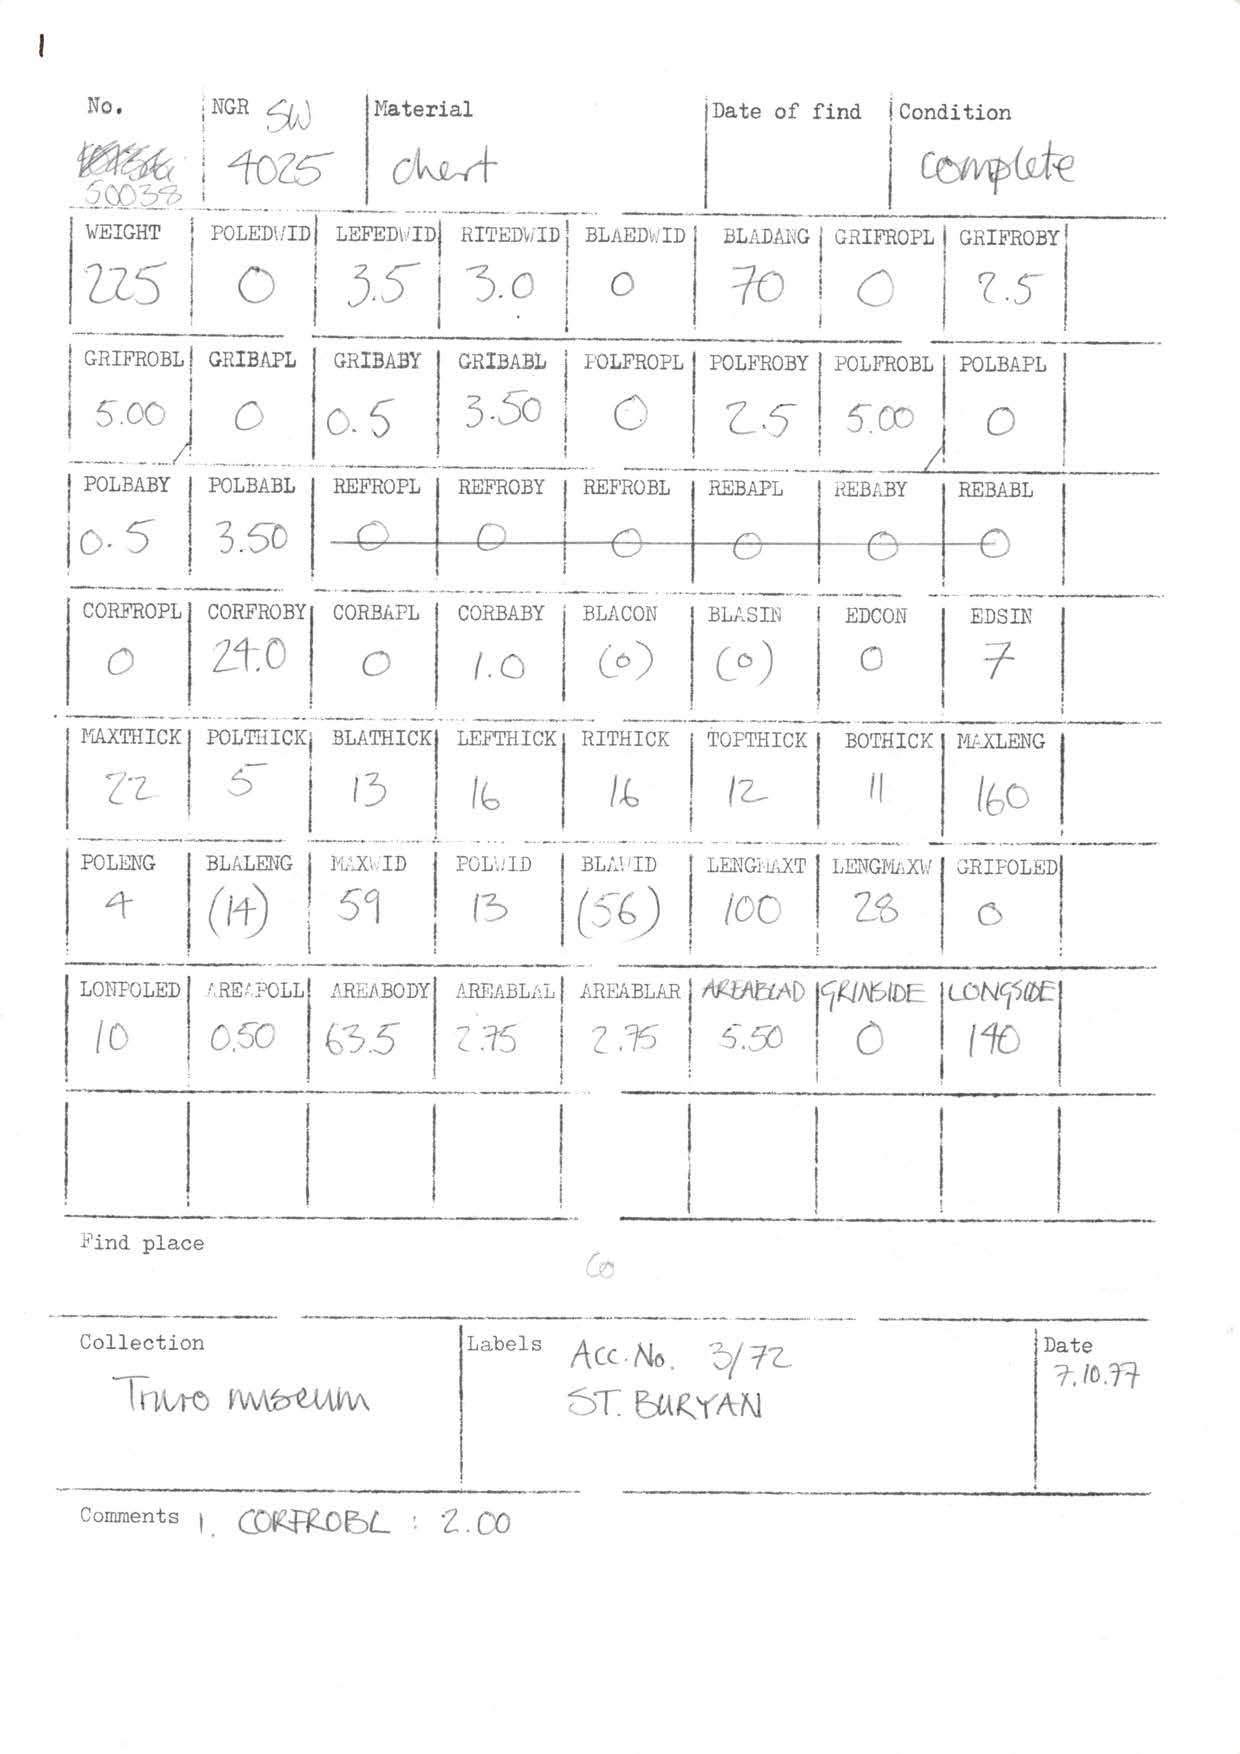 1
No. NGR SW Material Date of find Condition
50038 4025 chert complete
WEIGHT POLEDWID LEFEDWID RITEDWID BLAEDWID BLADANG GRIFROPL GRIFROBY
225 0 3.5 3.0 0 70 0 2.5
GRIFROBL GRIBAPL GRIBABY GRIBABL POLFROPL POLFROBY POLFROBL POLBAPL
5.00 0 0.5 3.50 0 2.5 5.00 0
POLBABY POLBABL REFROPL REFROBY REFROBL REBAPL REBABY REBABL
0.5 3.50 0 0 0 0 0 0
CORFROPL CORFROBY CORBAPL CORBABY BLACON BLASIN EDCON EDSIN
0 24.0 0 1.0 (0) (0) 0 7
MAXTHICK POLTHICK BLATHICK LEFTHICK RITHICK TOPTHICK BOTHICK MAXLENG
22 5 13 16 16 12 11 160
POLENG BLALENG MAXWID POLWID BLAWID LENGMAXT LENGMAXW GRIPOLED
4 (14) 59 13 (56) 100 28 0
LONPOLED AREAPOLL AREABODY AREABLAL AREABLAR AREABLAD GRINSIDE LONGSIDE
10 0.50 63.5 2.75 2.75 5.50 0 140
Find place
Co
Collection Labels Acc. No. 3/72 Date
Truro museum ST. BURYAN 7.10.77
Comments 1. CORFROBL : 2.00